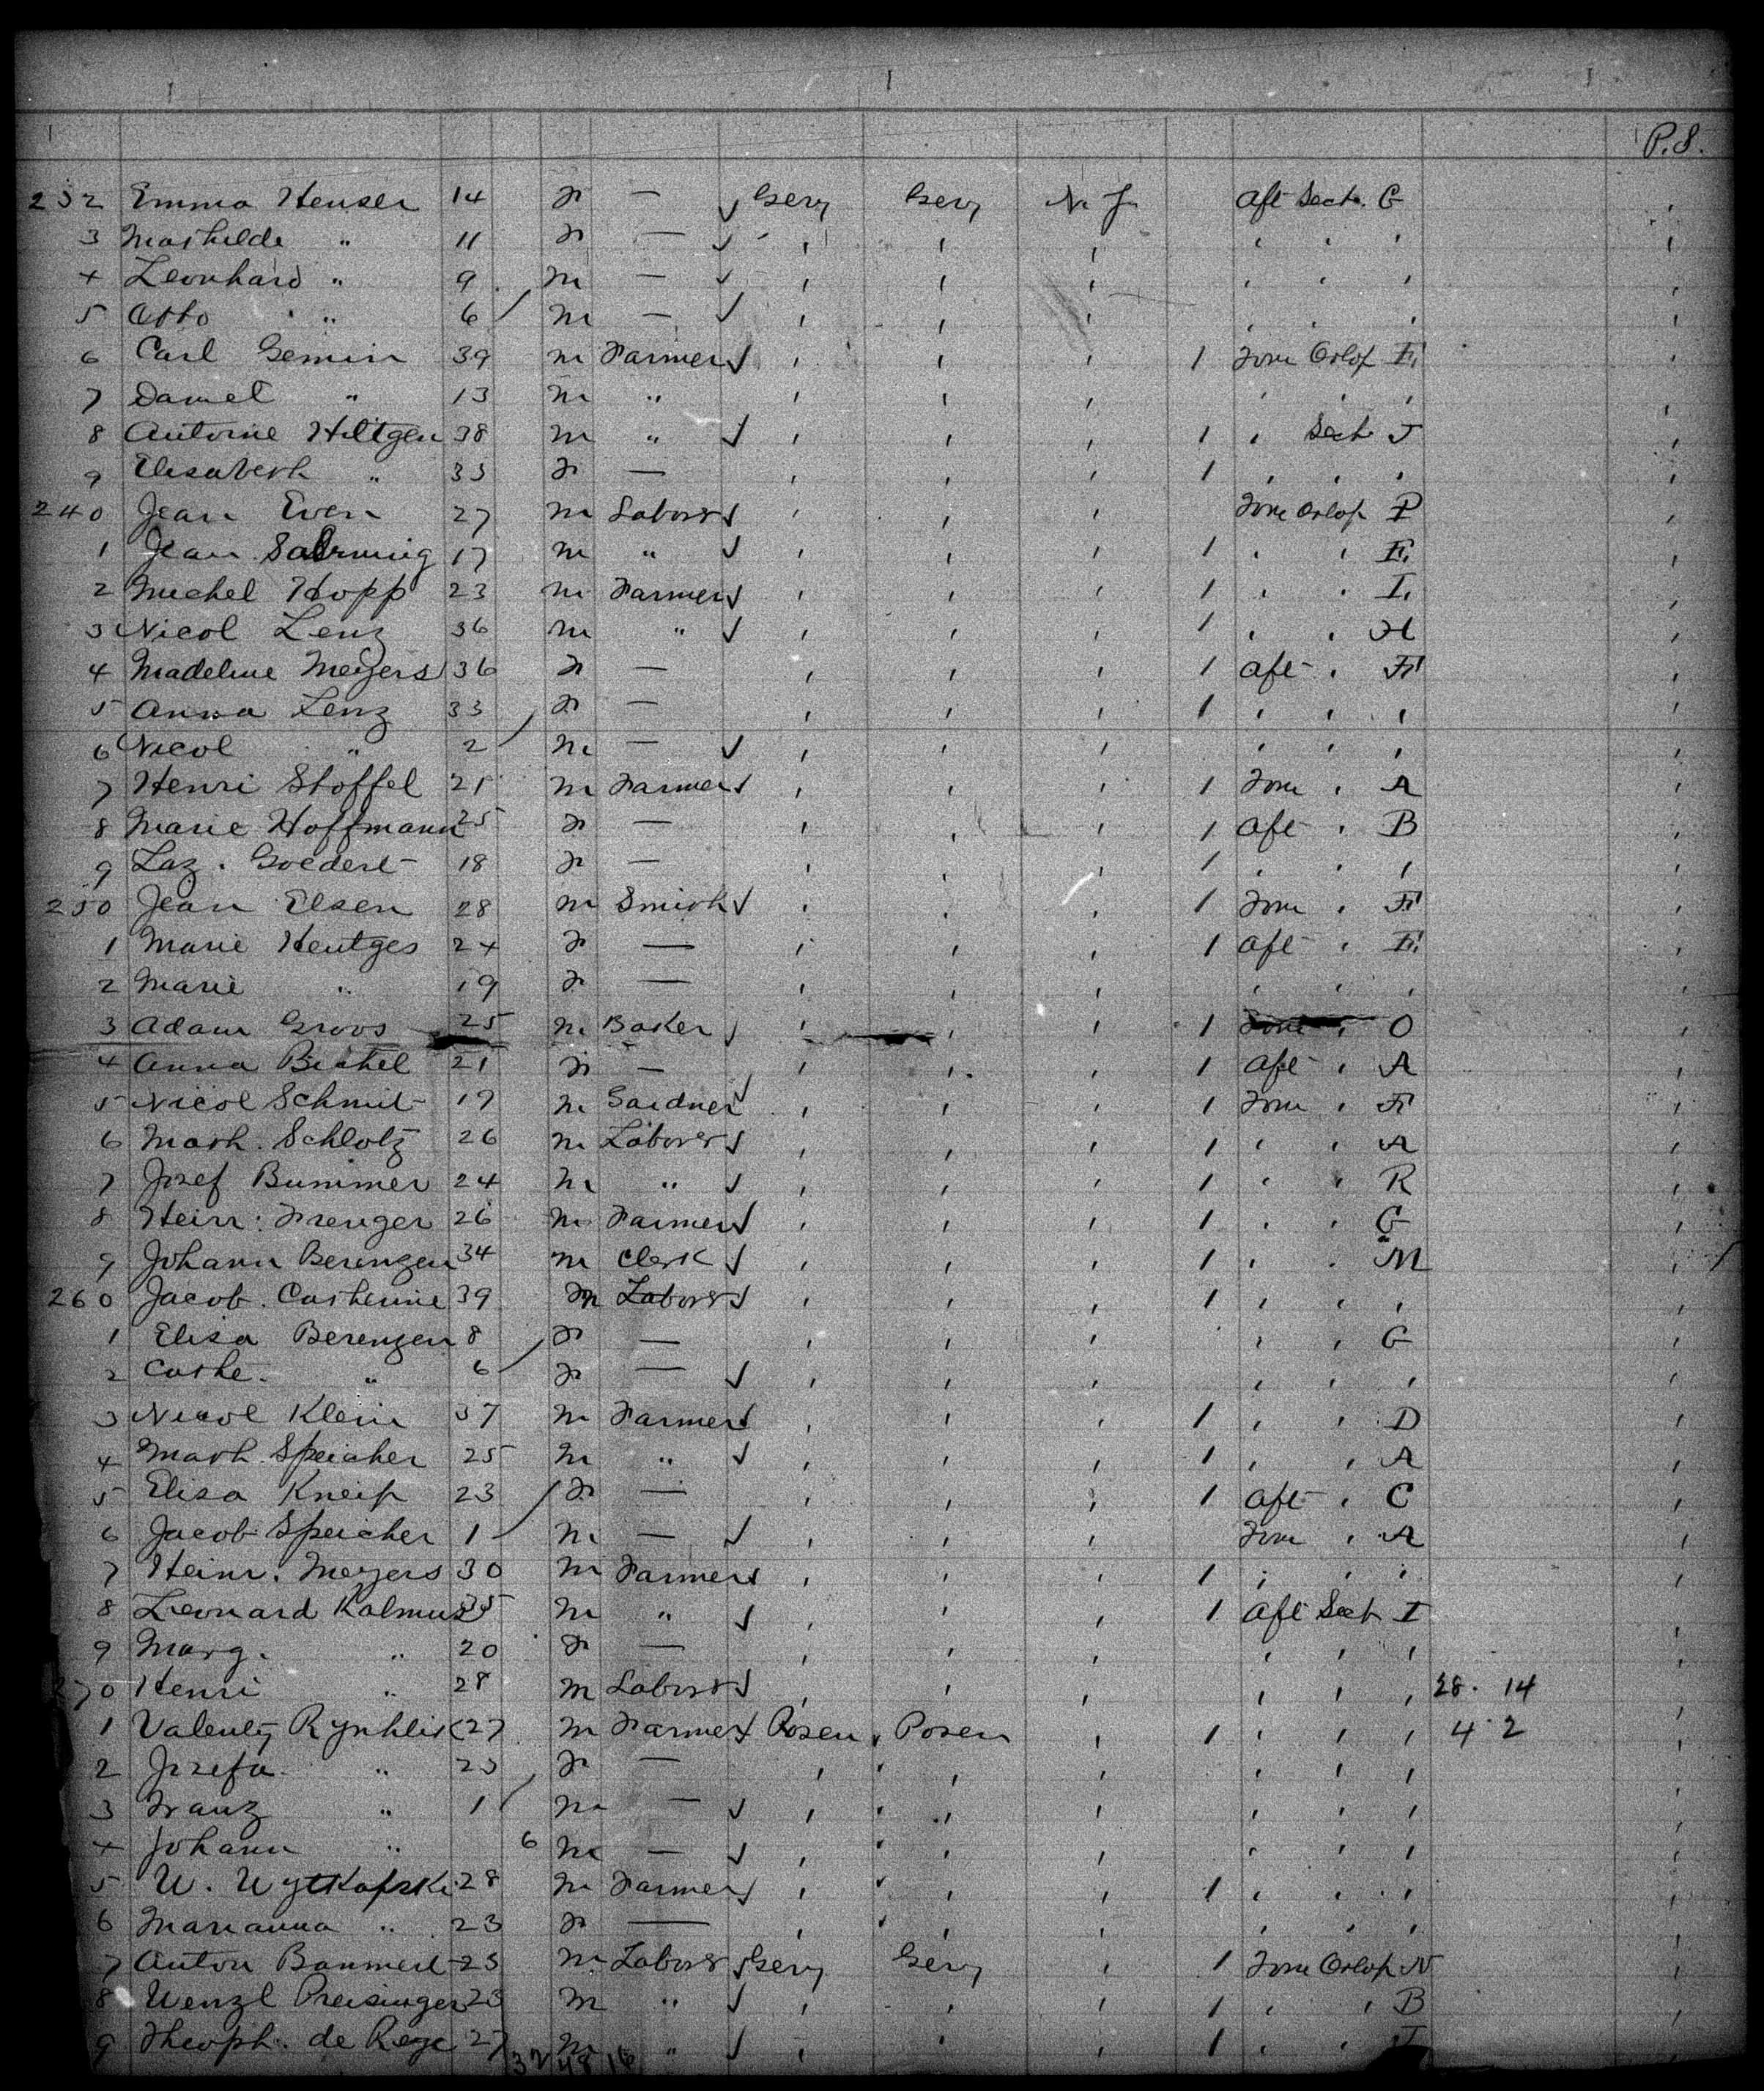 P.S.
232 Emma Heuser 14 F — Gery Gery N. J. Aft Sect. G
3 Mathilde " 11 F — , , , , , ,
4 Leonhard " 9 M — , , , , , ,
5 Otto " 6 M — , , , , , ,
6 Carl Gemin 39 M Farmer , , , 1 Fore Orlop E
7 Daniel " 13 M " , , , , , ,
8 Antoine Hiltgen 38 M " , , , 1 , Sect J
9 Elisabeth " 33 F — , , , 1 , , ,
240 Jean Even 27 M Labour , , , Fore Orlop P
1 Jean 17 M " , , , 1 , , E
2 Michel Hopp 23 M Farmer , , , 1 , , I
3 Nicol Lenz 36 M " , , , 1 , , H
4 Madeline Meyers 36 F — , , , 1 Aft , F
5 Anna Lenz 33 F — , , , 1 , , ,
6 Nicol " 2 M — , , , , , ,
7 Henri Stoffel 21 M Farmer , , , 1 Fore , A
8 Marie Hoffmann 25 F — , , , 1 Aft , B
9 Laz. Goedert 18 F — , , , 1 , , ,
250 Jean Elsen 28 M Smith , , , 1 Fore , F
1 Marie Hentges 24 F — , , , 1 Aft , E
2 Marie " 19 F — , , , , , ,
3 Adam Groos 25 M Baker , , , 1 Fore , O
4 Anna Bichel 21 F — , , , 1 Aft , A
5 Nicol Schmit 17 M Gardner , , , 1 Fore , F
6 Math. Schlotz 26 M Labour , , , 1 , , A
7 Josef Bummer 24 M " , , , 1 , , R
8 Heinr. Frenger 26 M Farmer , , , 1 , , G
9 Johann Berenzen 34 M Clerk , , , 1 , , M
260 Jacob. Catherine 39 M Labour , , , 1 , , ,
1 Elisa Berenzen 8 F — , , , , , G
2 Cathe. " 6 F — , , , , , ,
3 Nicol Klein 37 M Farmer , , , 1 , , D
4 Math. Speicher 25 M " , , , 1 , , A
5 Elisa Kneip 23 F — , , , 1 Aft , C
6 Jacob Speicher 1 M — , , , Fore , A
7 Heinr. Meyers 30 M Farmer , , , 1 , , ,
8 Leonard Kalmus 35 M " , , , 1 Aft Sect I
9 Marg. " 20 F — , , , , , ,
270 Henri " 28 M Labour , , , , , , 28. 14
1 Valenty Rynhlik 27 M Farmer Posen Posen , 1 , , , 4 2
2 Jozefa " 23 F — , , , , , ,
3 Franz " 1 M — , , , , , ,
4 Johann " 6 M — , , , , , ,
5 W. Wytkofski 28 M Farmer , , , 1 , , ,
6 Marianna " 23 F — , , , , , ,
7 Anton Bammert 23 M Labour Gery Gery , 1 Fore Orlop N
8 Wenzl Preisinger 23 M " , , , 1 , , B
9 Theoph. de Rege 27 M " , , , 1 , ,
32 48 16